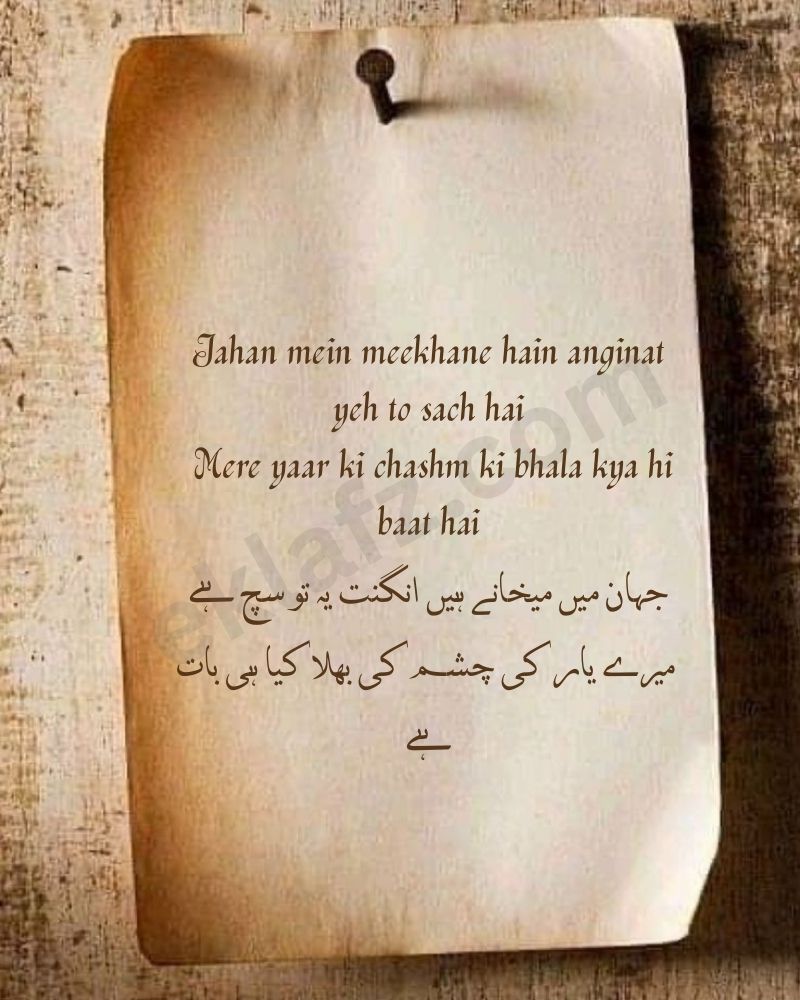 Jahan mein meekhane hain anginat
yeh to sach hai
Mere yaar ki chashm ki bhala kya hi
baat hai
جہان میں میخانے ہیں انگنت یہ تو سچ ہے
میرے یار کی چشم کی بھلا کیا ہی بات
ہے
eklafz.com